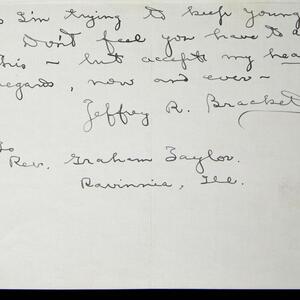 I'm trying to keep young
Don't feel you have to d
This – but accept my hea
regards, now and ever –
Jeffrey R. Bracket
To
Rev. Graham Taylor.
Ravinnia, Ill.